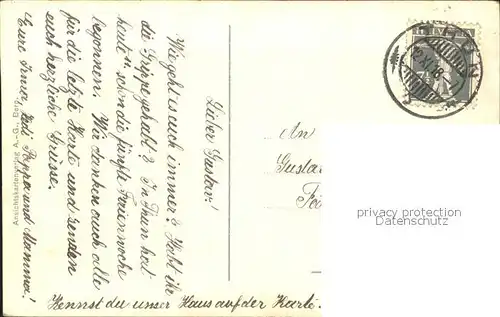 Lieber Gustav!
Wie geht es euch immer? Habt ihr
die Grippe gehabt? In Thun hat
heute schon die fünfte Ferienwoche
begonnen. Wir danken auch alle
für die letzte Karte und senden
euch herzliche Grüsse.
Eure Irma, Hedi, Pappa und Mamma!
Kennst du unser Haus auf der Karte.
An
Gustav
THUN
12.XI.18
HELVETIA
privacy protection
www.ansichtskarten-center.de